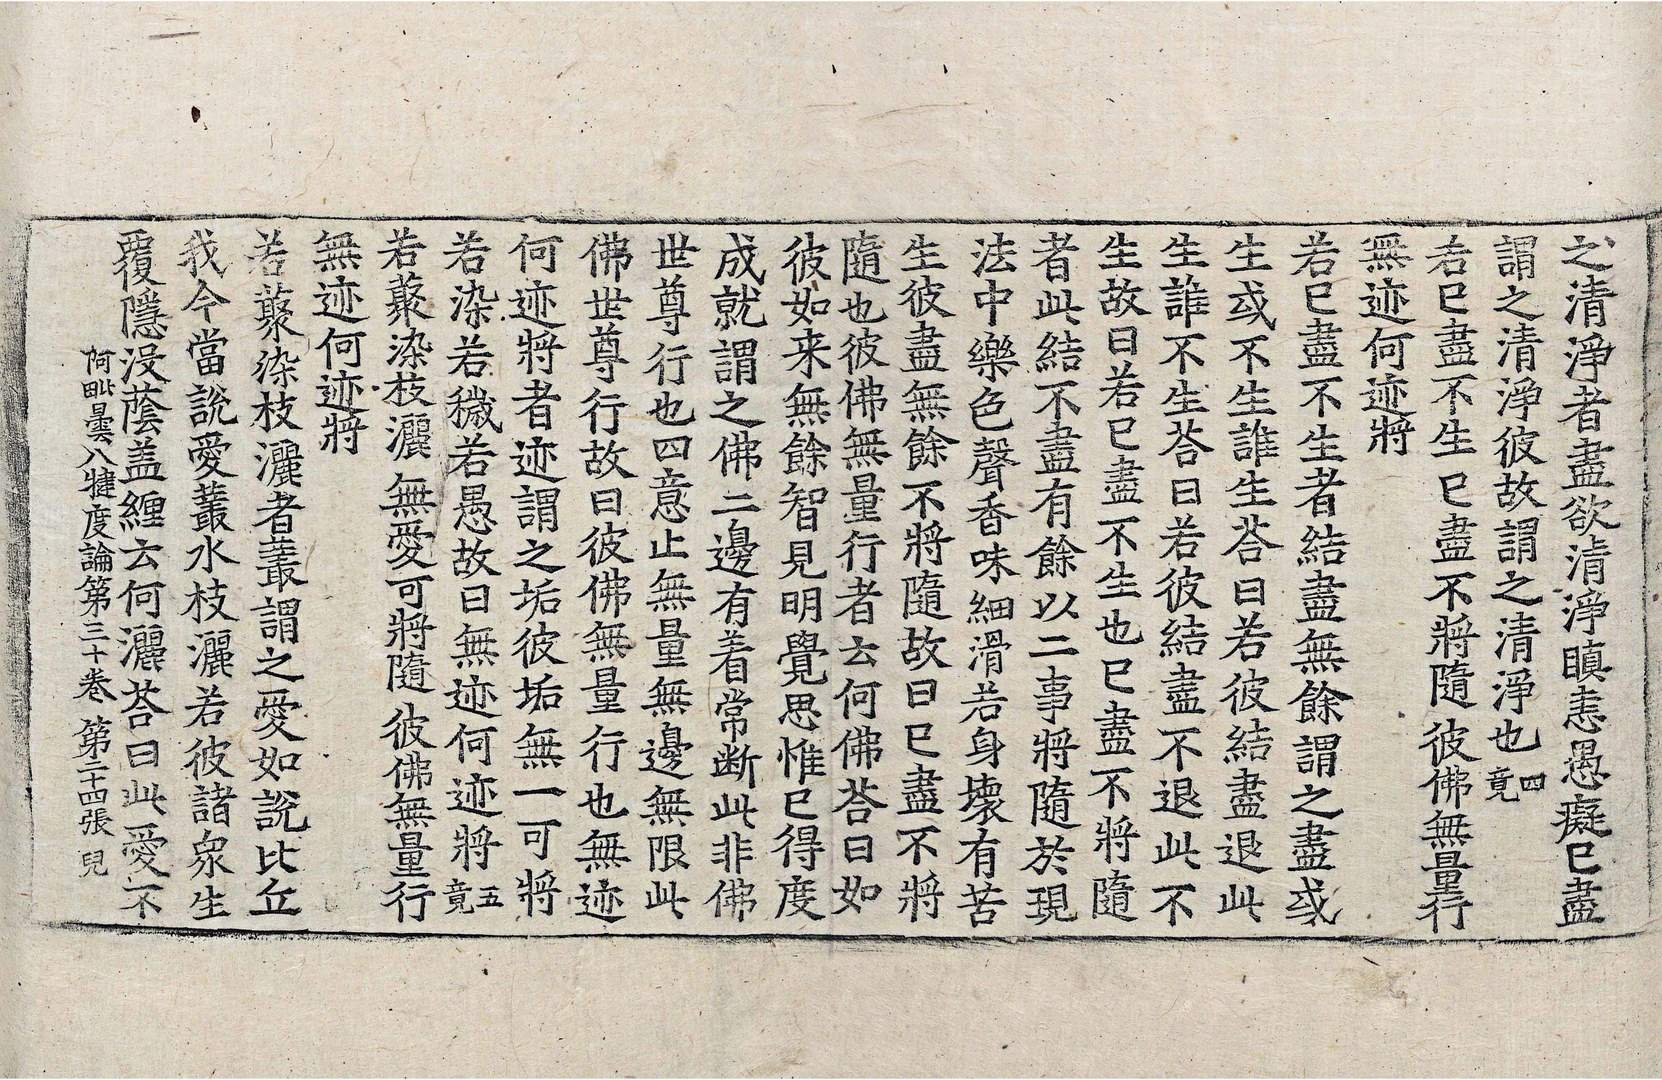 之清淨者盡欲清淨瞋恚愚癡已盡
謂之清淨彼故謂之清淨也四竟
若已盡不生已盡不將隨彼佛無量行
無迹何迹將
若已盡不生者結盡無餘謂之盡或
生或不生誰生荅曰若彼結盡退此
生誰不生荅曰若彼結盡不退此不
生故曰若已盡不生也已盡不將隨
者此結不盡有餘以二事將隨於現
法中樂色聲香味細滑若身壞有苦
生彼盡無餘不將隨故曰已盡不將
隨也彼佛無量行者云何佛荅曰如
彼如来無餘智見明覺思惟已得度
成就謂之佛二邊有着常断此非佛
世尊行也四意止無量無邊無限此
佛世尊行故曰彼佛無量行也無迹
何迹將者迹謂之垢彼垢無一可將
若染若穢若愚故曰無迹何迹將五竟
若藂染枝灑無愛可將隨彼佛無量行
無迹何迹將
若藂染枝灑者藂謂之愛如說比丘
我今當說愛藂水枝灑若彼諸衆生
覆隱没蔭盖纏云何灑荅曰此愛不
阿毗曇八犍度論第三十卷 第二十四張 兒